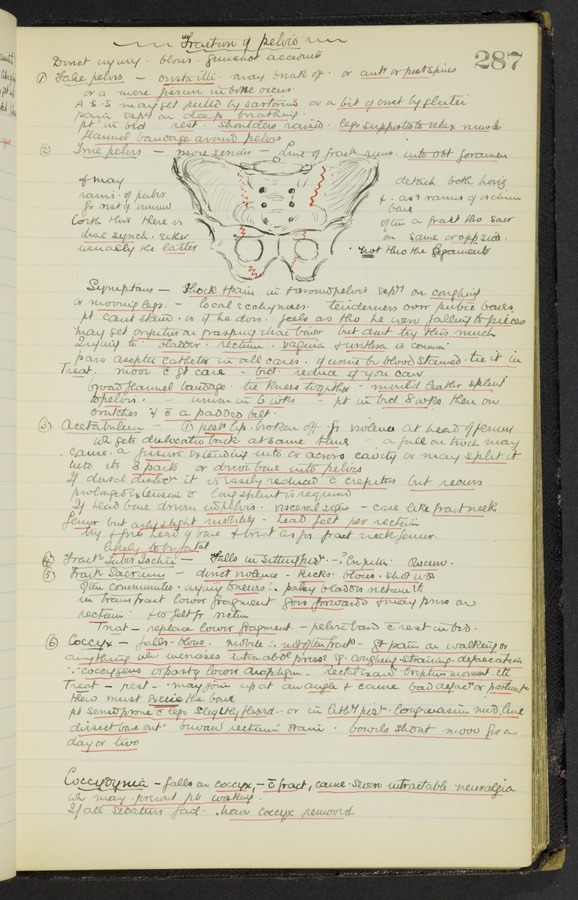 Fracture of pelvis
287
Direct injury. blows. gunshot accounts
① False pelvis - crista illi. away break off. or ant or post spines
or a mere fissure in bone occurs.
A.S.S may get pulled by sartorius or a bit of crest by glutei
pain esp on deep breathing.
pt in bed rest. Shoulders raised. legs supported to relax muscles
flannel bandage around pelvis
② True pelvis - more serious - line of fract runs into obt foramen
of may
rami of pubis
fr rest of innom
with this there is
iliac synch. either
usually the latter
detach both horiz
+ asc ramus of ischium
bone
often a fract thro sacr
on same or opp side.
not thro the ligaments
Symptoms - Shock + pain in + around pelvis esply on coughing
or moving legs. - local ecchymosis. tenderness over pubic bones
pt cant stand. or if he does. feels as tho he were falling to pieces
may get crepitus on grasping iliac bones but dont try this much
Injury to bladder. rectum. vagina + urethra is common
pass aseptic catheter in all cases. if urine be blood stained. tie it in
Treat. move c gt care - bed. reduce if you can
broad flannel bandage. tie knees together - mould leather splint
to pelvis. - union in 6 wks - pt in bed 8 wks then on
crutches c a padded belt.
③ Acetabulum - ① post lip. broken off fr violence at head of femur
wh gets dislocated back at same time - a fall on troch may
cause. a fissure extending into or across cavity or may split it
into its 3 parts or drive bone into pelvis
If dorsal disloc it is easily reduced c crepitus but recurs
prolonged extension c long splint is required
If head bone driven in pelvis. visceral signs - case like fract neck
femur but only slight mobility - head felt per rectum
try + free head of bone + treat as for fract neck femur.
likely to be fatal
④ Fract Tuber Ischii - Falls in sitting post. - Crepitus. Obscure.
⑤ Fract Sacrum - direct violence - kicks. blows. shot wds
Often comminuted. injury to nerves ∴ palsy bladder retent etc
in trans fract lower fragment goes forwards + may press on
rectum. + is felt fr rectum
Treat - replace lower fragment - pelvic band c rest in bed.
⑥ Coccyx - falls. blows. mobile ∴ not often fract - gt pain on walking or
anything wh increases intra abd press eg. coughing straining. defaecation
∵ coccygeus or partly lower diaphgm. Rectal exam crepitus movement etc
Treat - rest - may join up at an angle + cause bad defaec or
then must excise the bone
pt semiprone c legs slightly flexed. or in lith post. Long incision mid line
dissect bone out. beware rectum drain. bowels shdnt move for a
day or two
Coccydynia - falls on coccyx, - c fract, cause severe intractable neuralgia
wh may prevent pt walking.
If all sedatives fail. have coccyx removed.